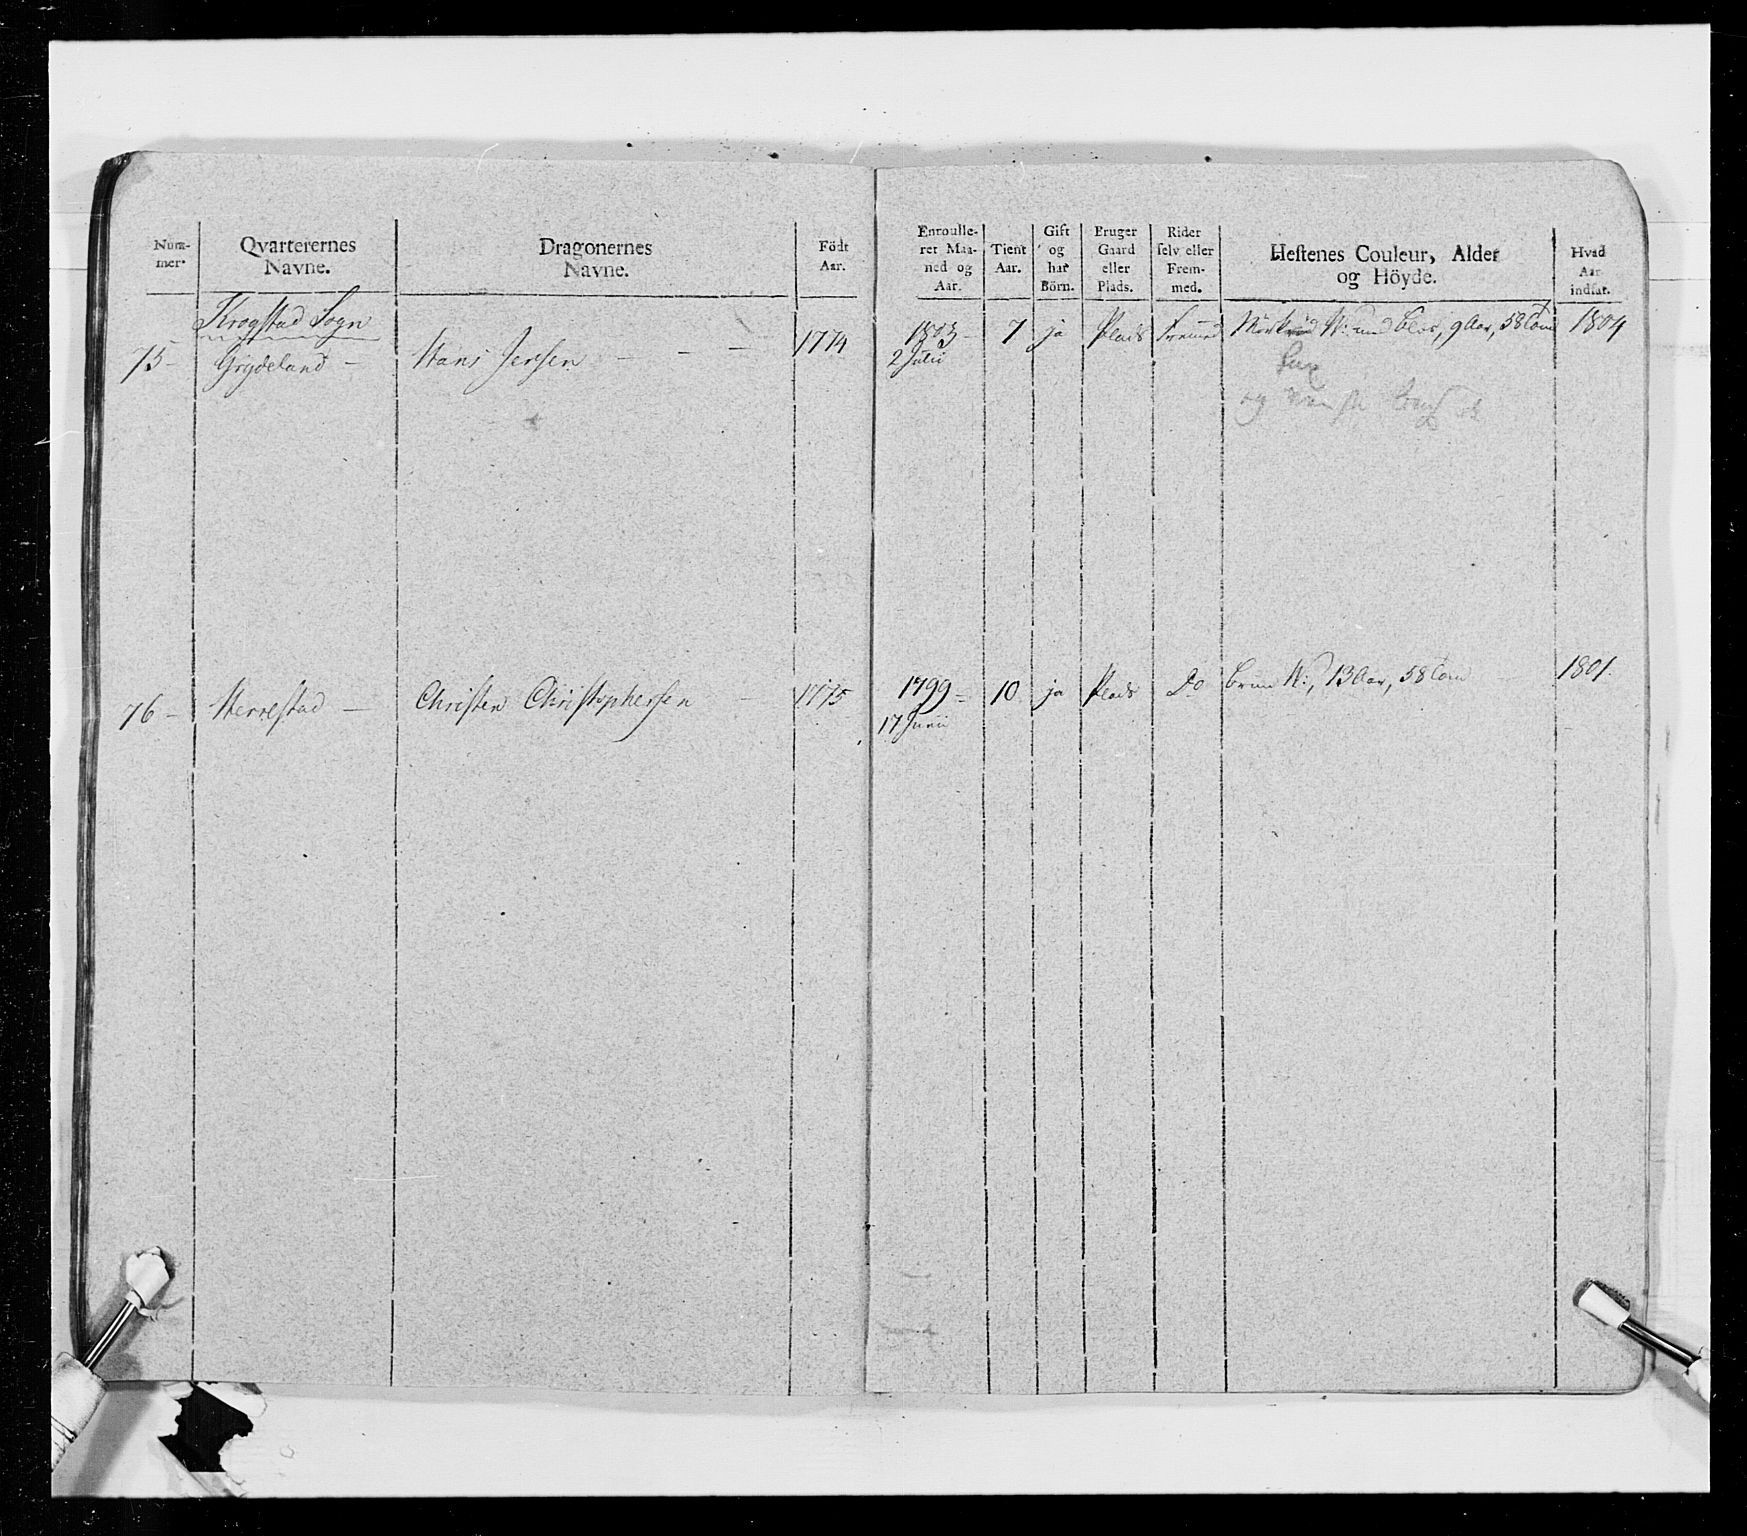 Num-
mer.
Qvarterernes
Navne.
Dragonernes
Navne.
Födt
Aar.
Enroulle-
ret Maa-
ned og
Aar.
Tient
Aar.
Gift
og
har
Börn.
Bruger
Gaard
eller
Plads.
Rider
selv eller
Frem-
med.
Hestenes Couleur, Alder
og Höyde.
Hvad
Aar
indsat.
Krogstad Sogn
75 - Grydeland - Hans Jensen - - - 1774 1803 - 7 ja Plads Fremed Mörk H: med 9 Aar, 58 Tom 1804
2 Julii
og
76 - Herrestad - Christen Christophersen - 1775 1799 - 10 ja Plads Do brun H:, 13 Aar, 58 Tom - 1801.
17 Junii